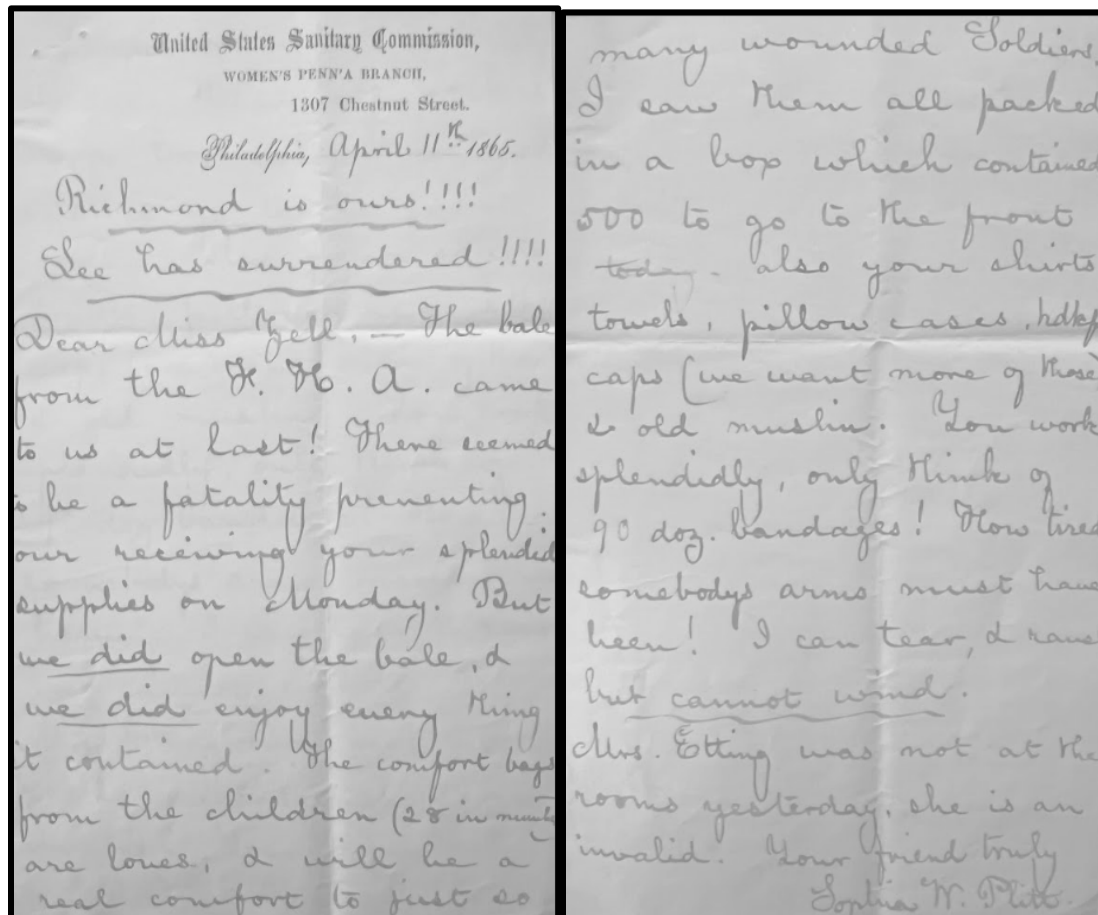 United States Sanitary Commission,
WOMEN'S PENN'A BRANCH,
1307 Chestnut Street.
Philadelphia, April 11th 1865.
Richmond is ours!!!!
Lee has surrendered!!!!
Dear Miss Zell, — The bale
from the H. A. came
to us at last! There seemed
to be a fatality preventing
our receiving your splendid
supplies on Monday. But
we did open the bale, &
we did enjoy every thing
it contained. The comfort bags
from the children (28 in
are loves, & will be a
real comfort to just so
many wounded Soldiers.
I saw them all packed
in a box which contained
500 to go to the front
today. also your shirts
towels, pillow cases, hdkfs
caps (we want more of those)
& old muslin. You work
splendidly, only think of
90 doz. bandages! How tired
somebodys arms must have
been! I can tear, & rave
but cannot wind.
Mrs. Etting was not at the
rooms yesterday, she is an
invalid. Your friend truly
Sophia W. Plitt.